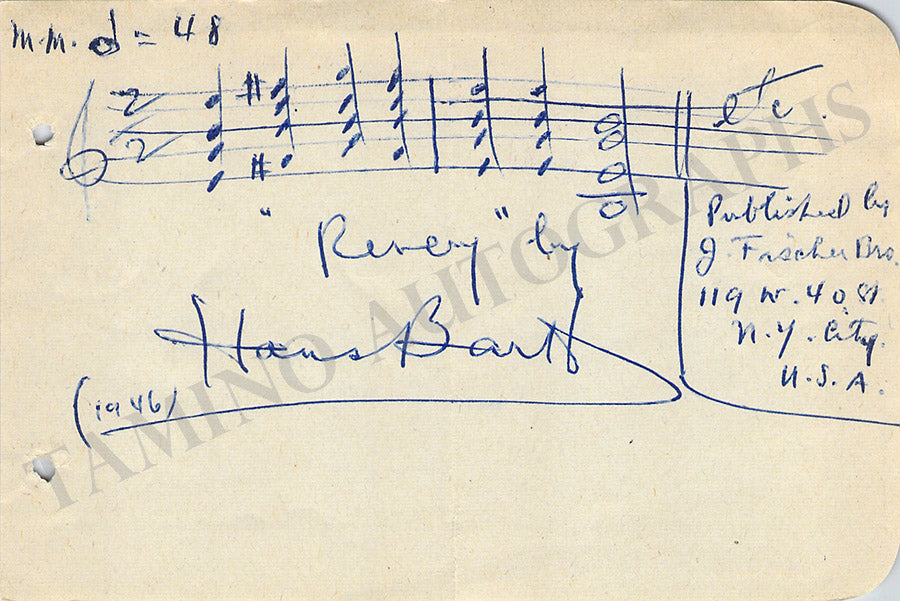 M.M. 𝅗𝅥 = 48
2
2
etc.
"Revery" by
Hans Barth
(1946)
Published by
J. Fischer Bro.
119 W. 40 St.
N.Y. City.
U.S.A.
TAMINO AUTOGRAPHS